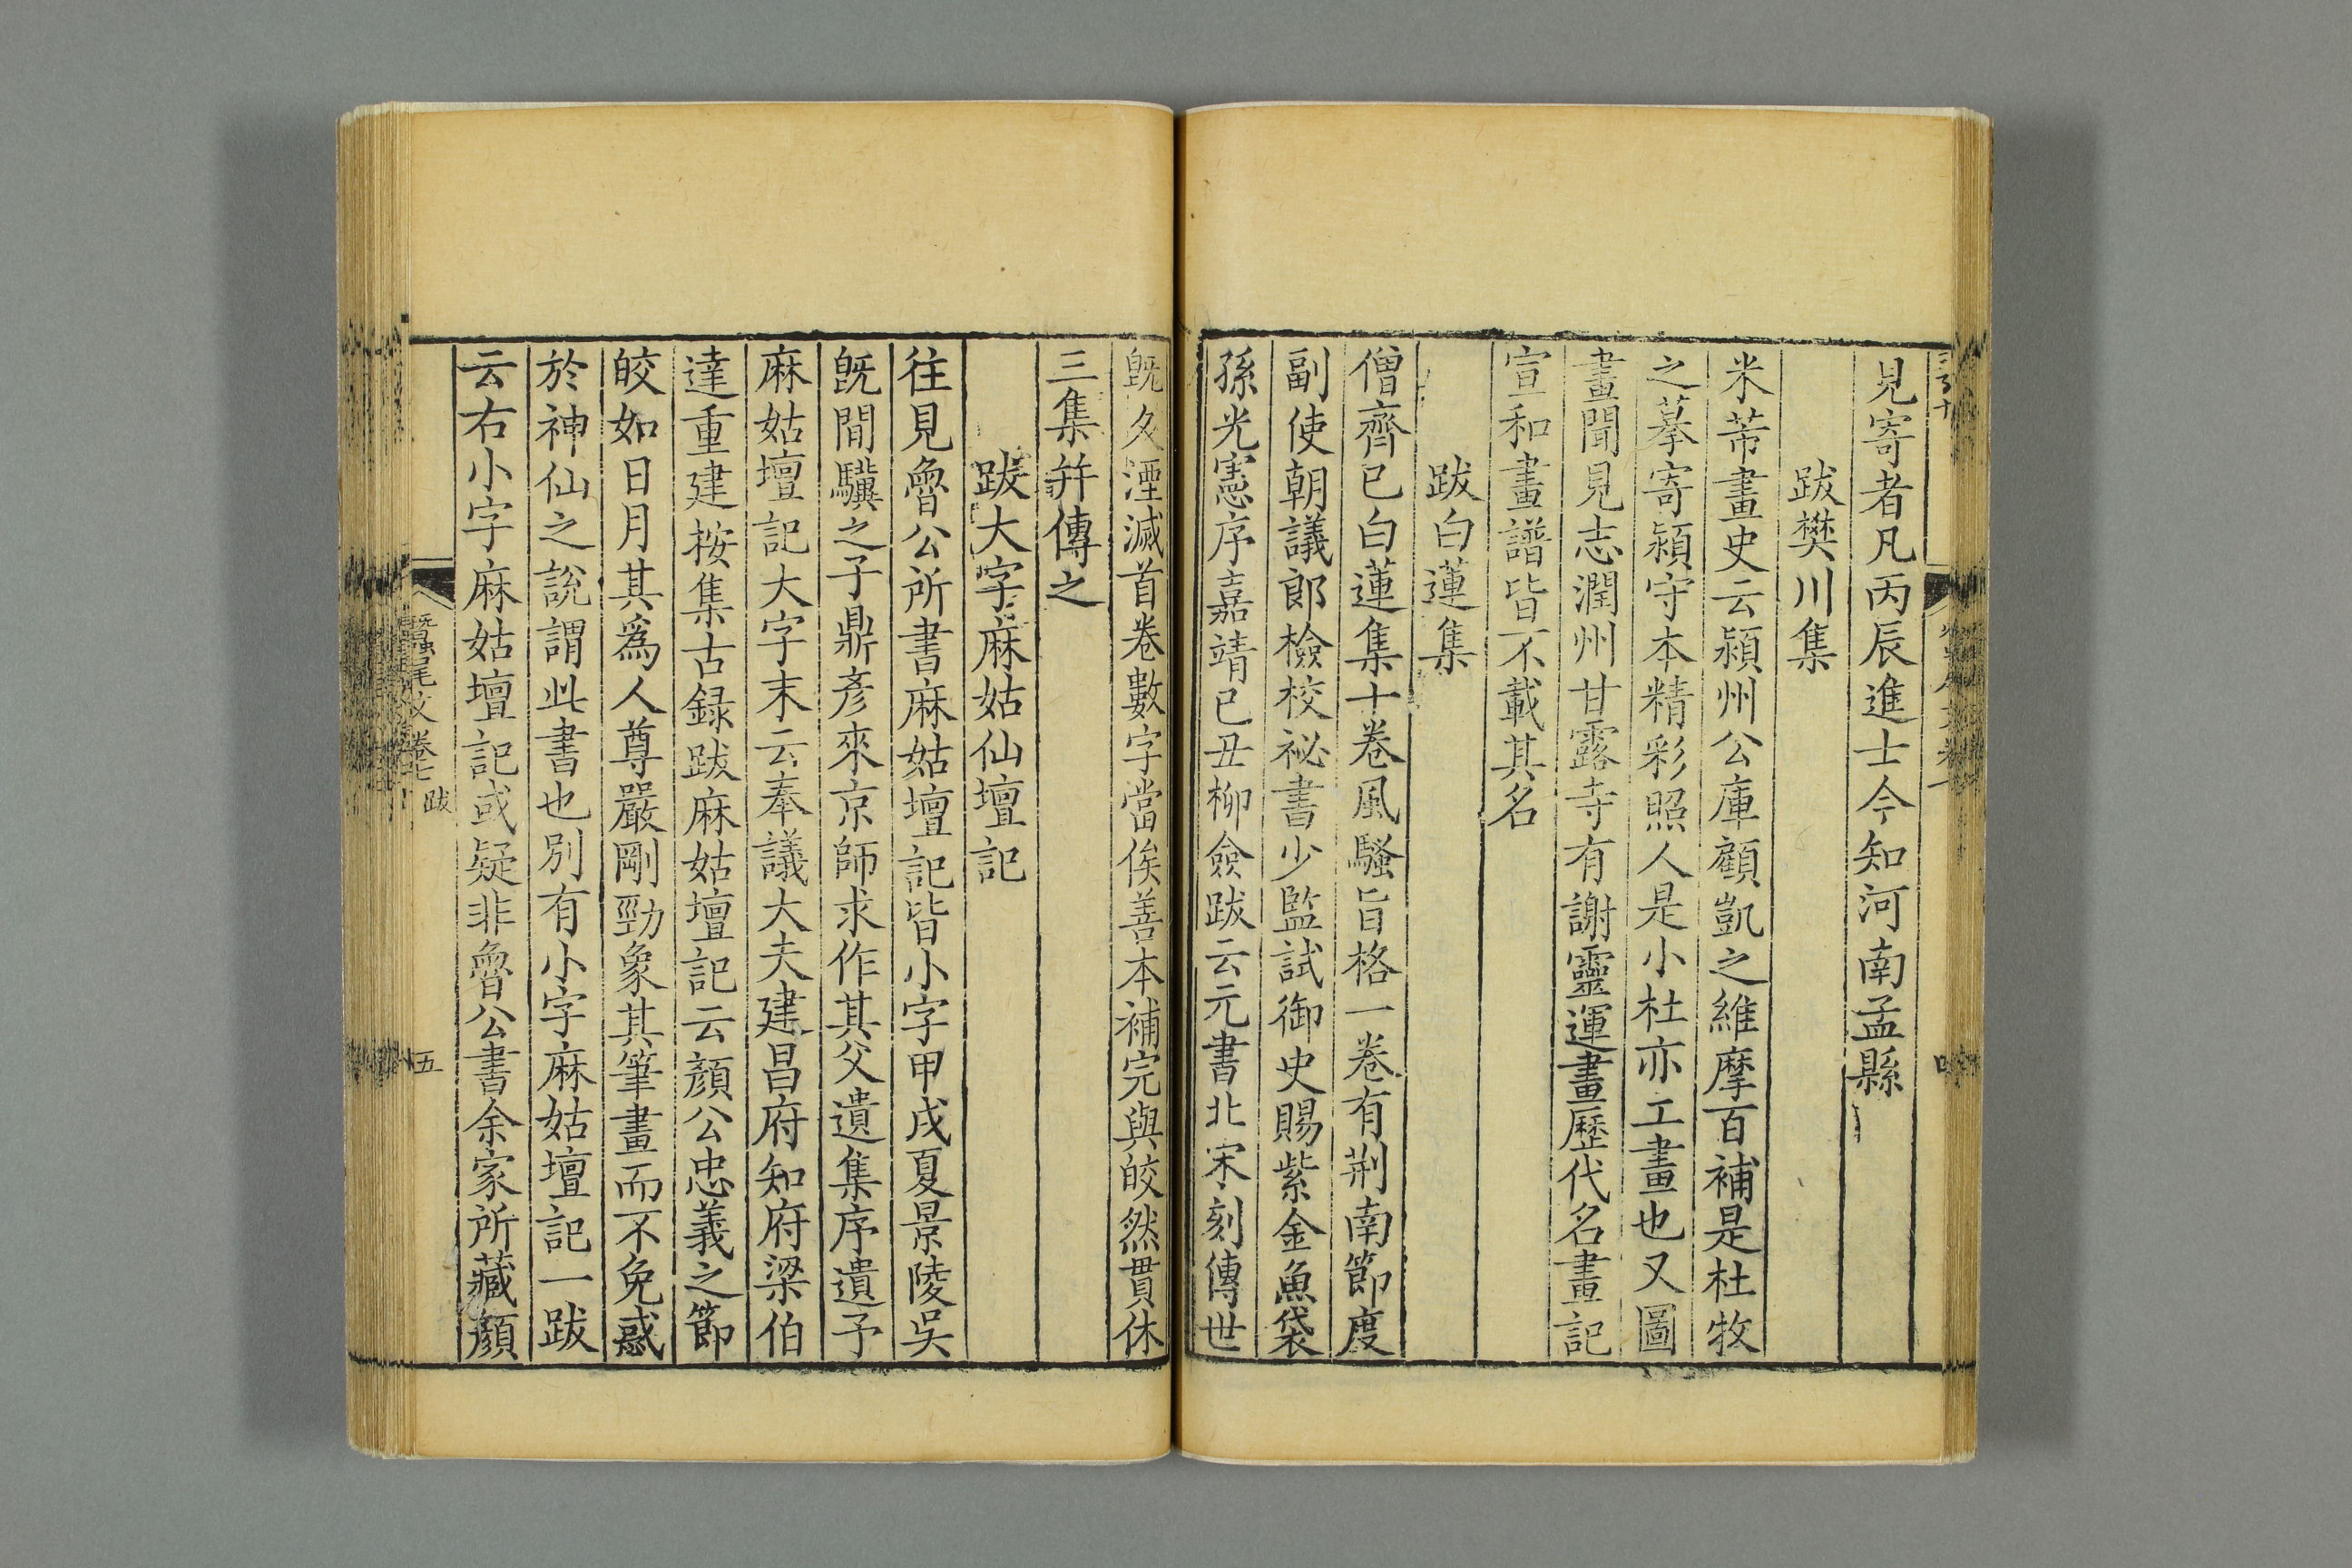 見寄者凡丙辰進士今知河南孟縣
跋樊川集
米芾畫史云潁州公庫顧凱之維摩百補是杜牧
之摹寄潁守本精彩照人是小杜亦工畫也又圖
畫聞見志潤州甘露寺有謝靈運畫歷代名畫記
宣和畫譜皆不載其名
跋白蓮集
僧齊已白蓮集十卷風騷旨格一卷有荆南節度
副使朝議郎檢校祕書少監試御史賜紫金魚袋
孫光憲序嘉靖已丑柳僉跋云元書北宋刻傳世
旣久湮滅首卷數字當俟善本補完與皎然貫休
三集并傳之
跋大字麻姑仙壇記
往見魯公所書麻姑壇記皆小字甲戌夏景陵吳
旣閒驥之子鼎彥來京師求作其父遺集序遺予
麻姑壇記大字末云奉議大夫建昌府知府梁伯
達重建按集古録跋麻姑壇記云顏公忠義之節
皎如日月其爲人尊嚴剛勁象其筆畫而不免惑
於神仙之說謂此書也別有小字麻姑壇記一跋
云右小字麻姑壇記或疑非魯公書余家所藏顏
蠶尾文 卷七 跋 五